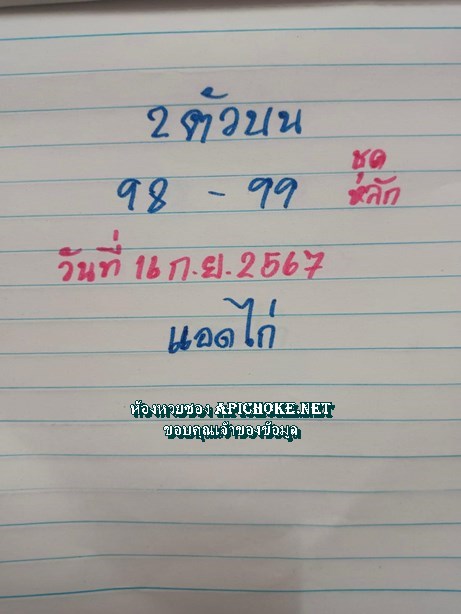 2ตัวบน
98 - 99
ชุด
หลัก
วันที่ 16 ก.ย. 2567
แอดไก่
ห้องหวยซอง APICHOKE.NET
ขอบคุณเจ้าของข้อมูล